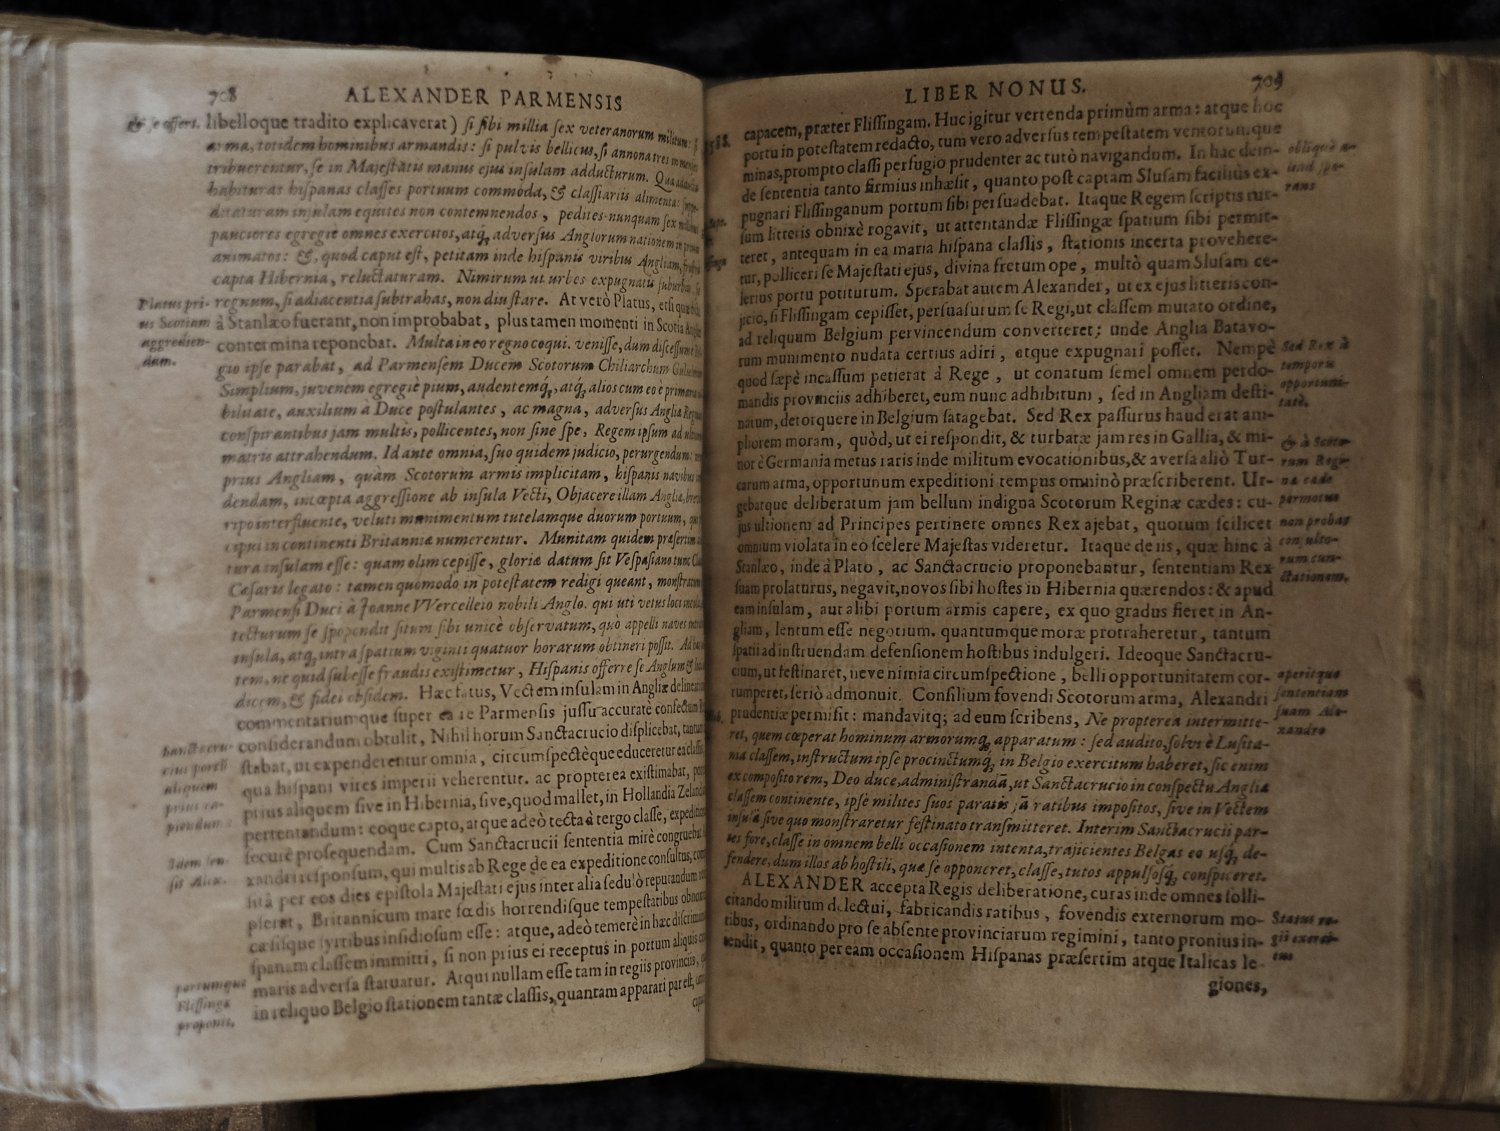 708
ALEXANDER PARMENSIS
libelloque tradito explicaverat) ſi ſibi millia ſex veteranorum
arma, totidem hominibus armandis: ſi pulvis bellicus, ſi annona tres
tribuerentur, ſe in Majeſtatis manus ejus inſulam adducturum.
habituras hiſpanas claſſes portuum commoda, & claſſiariis alimenta:
daturam inſulam equites non contemnendos, pedites nunquam ſex
pauciores egregiè omnes exercitos, atq; adverſus Anglorum nationem
animatos: &, quod caput eſt, petitam inde hiſpanis viribus Angliam,
capta Hibernia, reluctaturam. Nimirum ut urbes expugnatu
regnum, ſi adjacentia ſubtrahas, non diu ſtare. At verò Platus, etſi
à Stanlæo fuerant, non improbabat, plus tamen momenti in Scotia
contermina reponebat. Multa in eo regno coqui. veniſſe, dum
gio ipſe parabat, ad Parmenſem Ducem Scotorum Chiliarchum
Simplium, juvenem egregiè pium, audentemq;, atq; alios cum eo è
bilitate, auxilium à Duce poſtulantes, ac magna, adverſus Angliæ
conſpirantibus jam multis, pollicentes, non ſine ſpe, Regem ipſum ad
matris attrahendum. Id ante omnia, ſuo quidem judicio, perurgendum:
prius Angliam, quàm Scotorum armis implicitam, hiſpanis navibus
dendam, incœpta aggreſſione ab inſula Vecti, Objacere illam Angliæ,
ripo interfluente, veluti munimentum tutelamque duorum portuum,
cipui in continenti Britanniæ numerentur. Munitam quidem præſertim
tura inſulam eſſe: quam olim cepiſſe, gloriæ datum ſit Veſpaſiano tunc
Cæſaris legato: tamen quomodo in poteſtatem redigi queant,
Parmenſi Duci à Joanne VVercelleio nobili Anglo. qui uti vetus loci
tecturum ſe ſpopendit ſitum ſibi unicè obſervatum, quò appelli naves
inſula, atq; intra ſpatium viginti quatuor horarum obtineri poſſit.
tem, ne quid ſubeſſe fraudis exiſtimetur, Hiſpanis offerre ſe Anglum &
dicem, & fidei obſidem. Hæc fatus, Vectem inſulam in Angliæ
commentariumque ſuper ea re Parmenſis juſſu accuratè confectum
conſiderandum obtulit, Nihil horum Sanctacrucio diſplicebat,
ſtabat, ut expenderentur omnia, circumſpectèque educeretur ea claſſis
qua hiſpani vires imperii veherentur. ac propterea exiſtimabat,
prius aliquem ſive in Hibernia, ſive, quod mallet, in Hollandia
pertentandum: eoque capto, atque adeò tecta à tergo claſſe,
ſecurè proſequendam. Cum Sanctacrucii ſententia mirè
xandri reſponſum, qui multis ab Rege de ea expeditione conſultus,
ſità per eos dies epiſtola Majeſtati ejus inter alia ſedulò reputandum
pſerat, Britannicum mare fœdis horrendiſque tempeſtatibus
cæſiſque ſyrtibus inſidioſum eſſe: atque, adeò temerè in hæc diſcrimina
ſpanam claſſem immitti, ſi non prius ei receptus in portum aliquis
maris adverſa ſtatuatur. Atqui nullam eſſe tam in regiis provinciis,
in reliquo Belgio ſtationem tantæ claſſis, quantam apparari par eſt,
& ſe offert.
Platus pri-
us Scotiam
aggredien-
dam.
Sanctacru-
cius portū
aliquem
prius ca-
piendum.
Idem ſen-
ſit Alex.
portumque
Fliſſingæ
proponit.
LIBER NONUS.
709
capacem, præter Fliſſingam. Huc igitur vertenda primùm arma: atque hoc
portu in poteſtatem redacto, tum vero adverſus tempeſtatem ventorumque
minas, prompto claſſi perfugio prudenter ac tutò navigandum. In hac dein-
de ſententia tanto firmius inhæſit, quanto poſt captam Sluſam facilius ex-
pugnari Fliſſinganum portum ſibi perſuadebat. Itaque Regem ſcriptis rur-
ſum litteris obnixè rogavit, ut attentandæ Fliſſingæ ſpatium ſibi permit-
teret, antequam in ea maria hiſpana claſſis, ſtationis incerta provehere-
tur, polliceri ſe Majeſtati ejus, divina fretum ope, multò quam Sluſam ce-
lerius portu potiturum. Sperabat autem Alexander, ut ex ejus litteris con-
jicio, ſi Fliſſingam cepiſſet, perſuaſurum ſe Regi, ut claſſem mutato ordine,
ad reliquum Belgium pervincendum converteret; unde Anglia Batavo-
rum munimento nudata certius adiri, atque expugnari poſſet. Nempè
quod ſæpè incaſſum petierat à Rege, ut conatum ſemel omnem perdo-
mandis provinciis adhiberet, eum nunc adhibitum, ſed in Angliam deſti-
natum, detorquere in Belgium ſatagebat. Sed Rex paſſurus haud erat am-
pliorem moram, quòd, ut ei reſpondit, & turbatæ jam res in Gallia, & mi-
nor è Germania metus raris inde militum evocationibus, & averſa aliò Tur-
carum arma, opportunum expeditioni tempus omninò præſcriberent. Ur-
gebatque deliberatum jam bellum indigna Scotorum Reginæ cædes: cu-
jus ultionem ad Principes pertinere omnes Rex ajebat, quorum ſcilicet
omnium violata in eo ſcelere Majeſtas videretur. Itaque de iis, quæ hinc à
Stanlæo, inde à Plato, ac Sanctacrucio proponebantur, ſententiam Rex
ſuam prolaturus, negavit, novos ſibi hoſtes in Hibernia quærendos: & apud
eam inſulam, aut alibi portum armis capere, ex quo gradus fieret in An-
gliam, lentum eſſe negotium. quantumque moræ protraheretur, tantum
ſpatii ad inſtruendam defenſionem hoſtibus indulgeri. Ideoque Sanctacru-
cium, ut feſtinaret, neve nimia circumſpectione, belli opportunitatem cor-
rumperet, ſeriò admonuit. Conſilium fovendi Scotorum arma, Alexandri
prudentiæ permiſit: mandavitq; ad eum ſcribens, Ne propterea intermitte-
ret, quem cœperat hominum armorumq; apparatum: ſed audito, ſolvi è Luſita-
nia claſſem, inſtructum ipſe procinctumq; in Belgio exercitum haberet, ſic enim
ex compoſito rem, Deo duce, adminiſtrandā, ut Sanctacrucio in conſpectu Angliæ
claſſem continente, ipſe milites ſuos paratis jā ratibus impoſitos, ſive in Vectem
inſulā ſive quo monſtraretur feſtinato tranſmitteret. Interim Sanctacrucii par-
tes fore, claſſe in omnem belli occaſionem intenta, trajicientes Belgas eo uſq; de-
fendere, dum illos ab hoſtili, quæ ſe opponeret, claſſe, tutos appulſoſq; conſpiceret.
ALEXANDER accepta Regis deliberatione, curas inde omnes ſolli-
citando militum delectui, fabricandis ratibus, fovendis externorum mo-
tibus, ordinando pro ſe abſente provinciarum regimini, tanto pronius in-
tendit, quanto per eam occaſionem Hiſpanas præſertim atque Italicas le-
giones,
Sed Rex à
temporis
opportuni-
tate,
& à Scoto-
rum Regi-
næ cæde
permotus
non probat
conſulto-
rum cun-
ctationem,
aperitque
ſententiam
ſuam Ale-
xandro